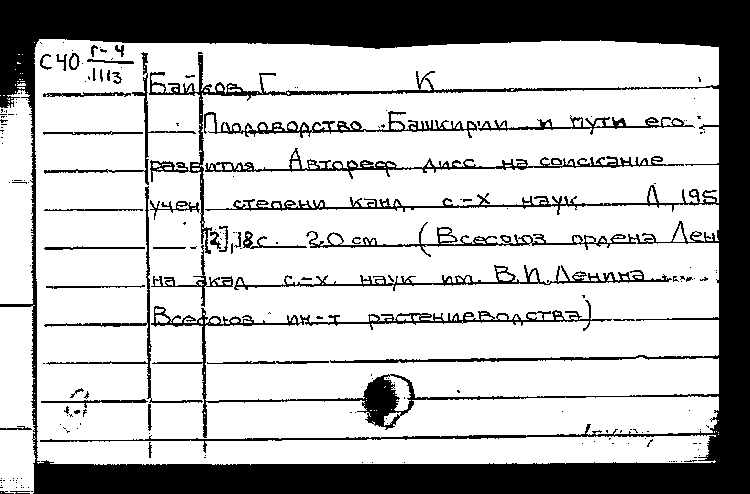 С40 Г-4
1113
Байков, Г. К
Плодоводство Башкирии и пути его
развития. Автореф. дисс. на соискание
учен степени канд. с.-х наук. Л, 195
[2], 18 с. 20 см. (Всесоюз ордена Лени
на акад. с.-х. наук им. В.И. Ленина
Всесоюз. ин-т растениеводства)